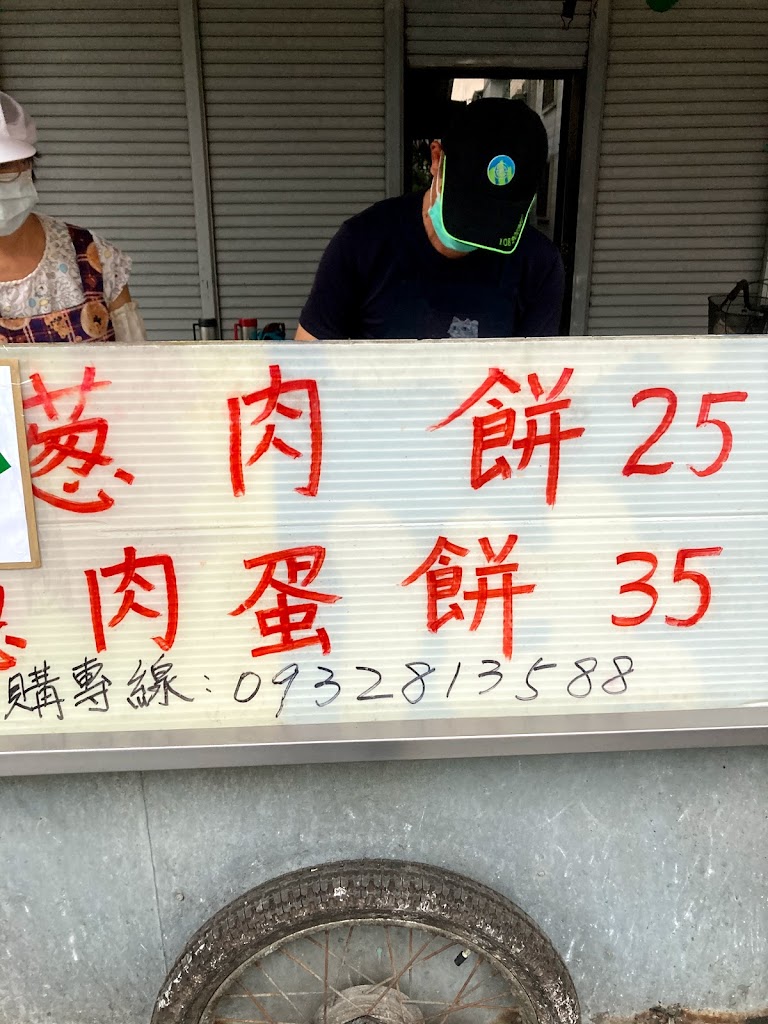 蔥肉餅25
肉蛋餅35
購專線:0932813588